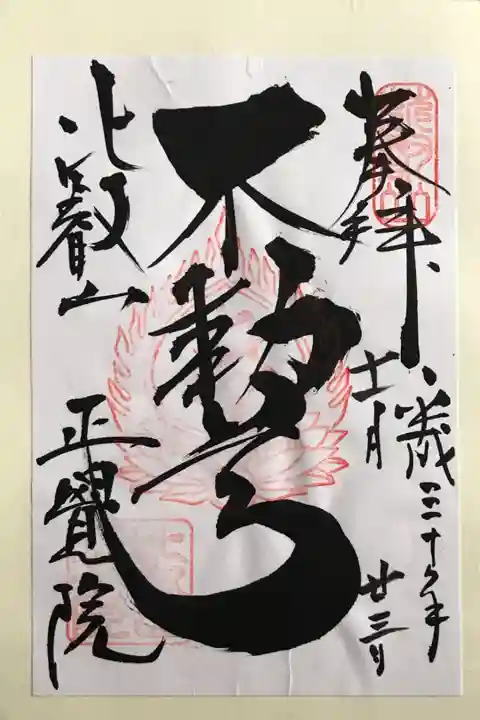 奉拝
平成三十年
十一月
廿三日
不動
比叡山
正覺院